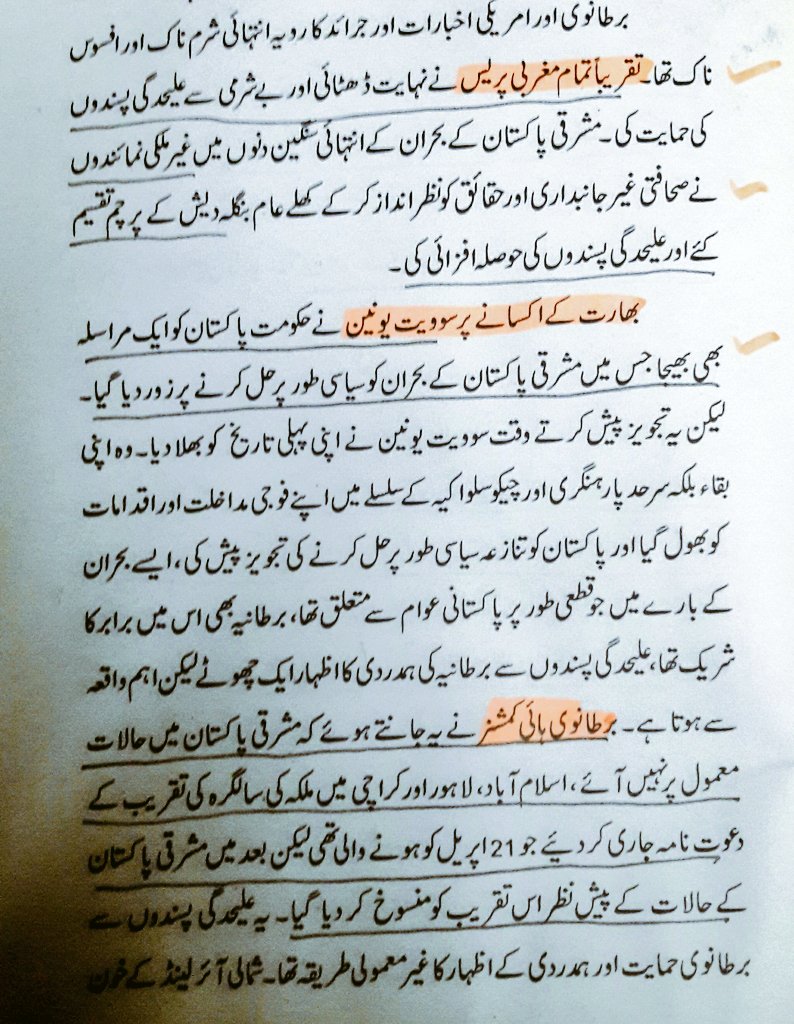 برطانوی اور امریکی اخبارات اور جرائد کا رویہ انتہائی شرم ناک اور افسوس
ناک تھا۔ تقریباً تمام مغربی پریس نے نہایت ڈھٹائی اور بے شرمی سے علیحدگی پسندوں
کی حمایت کی۔ مشرقی پاکستان کے بحران کے انتہائی سنگین دنوں میں غیر ملکی نمائندوں
نے صحافتی غیر جانبداری اور حقائق کو نظر انداز کر کے کھلے عام بنگلہ دیش کے پرچم تقسیم
کئے اور علیحدگی پسندوں کی حوصلہ افزائی کی۔
بھارت کے اکسانے پر سوویت یونین نے حکومت پاکستان کو ایک مراسلہ
بھی بھیجا جس میں مشرقی پاکستان کے بحران کو سیاسی طور پر حل کرنے پر زور دیا گیا۔
لیکن یہ تجویز پیش کرتے وقت سوویت یونین نے اپنی پہلی تاریخ کو بھلا دیا۔ وہ اپنی
بقاء بلکہ سرحد پار ہنگری اور چیکوسلواکیہ کے سلسلے میں اپنے فوجی مداخلت اور اقدامات
کو بھول گیا اور پاکستان کو تنازعہ سیاسی طور پر حل کرنے کی تجویز پیش کی، ایسے بحران
کے بارے میں جو قطعی طور پر پاکستانی عوام سے متعلق تھا، برطانیہ بھی اس میں برابر کا
شریک تھا، علیحدگی پسندوں سے برطانیہ کی ہمدردی کا اظہار ایک چھوٹے لیکن اہم واقعہ
سے ہوتا ہے۔ برطانوی ہائی کمشنر نے یہ جانتے ہوئے کہ مشرقی پاکستان میں حالات
معمول پر نہیں آئے، اسلام آباد، لاہور اور کراچی میں ملکہ کی سالگرہ کی تقریب کے
دعوت نامہ جاری کر دیئے جو 21 اپریل کو ہونے والی تھی لیکن بعد میں مشرقی پاکستان
کے حالات کے پیش نظر اس تقریب کو منسوخ کر دیا گیا۔ یہ علیحدگی پسندوں سے
برطانوی حمایت اور ہمدردی کے اظہار کا غیر معمولی طریقہ تھا۔ شمالی آئرلینڈ کے خون